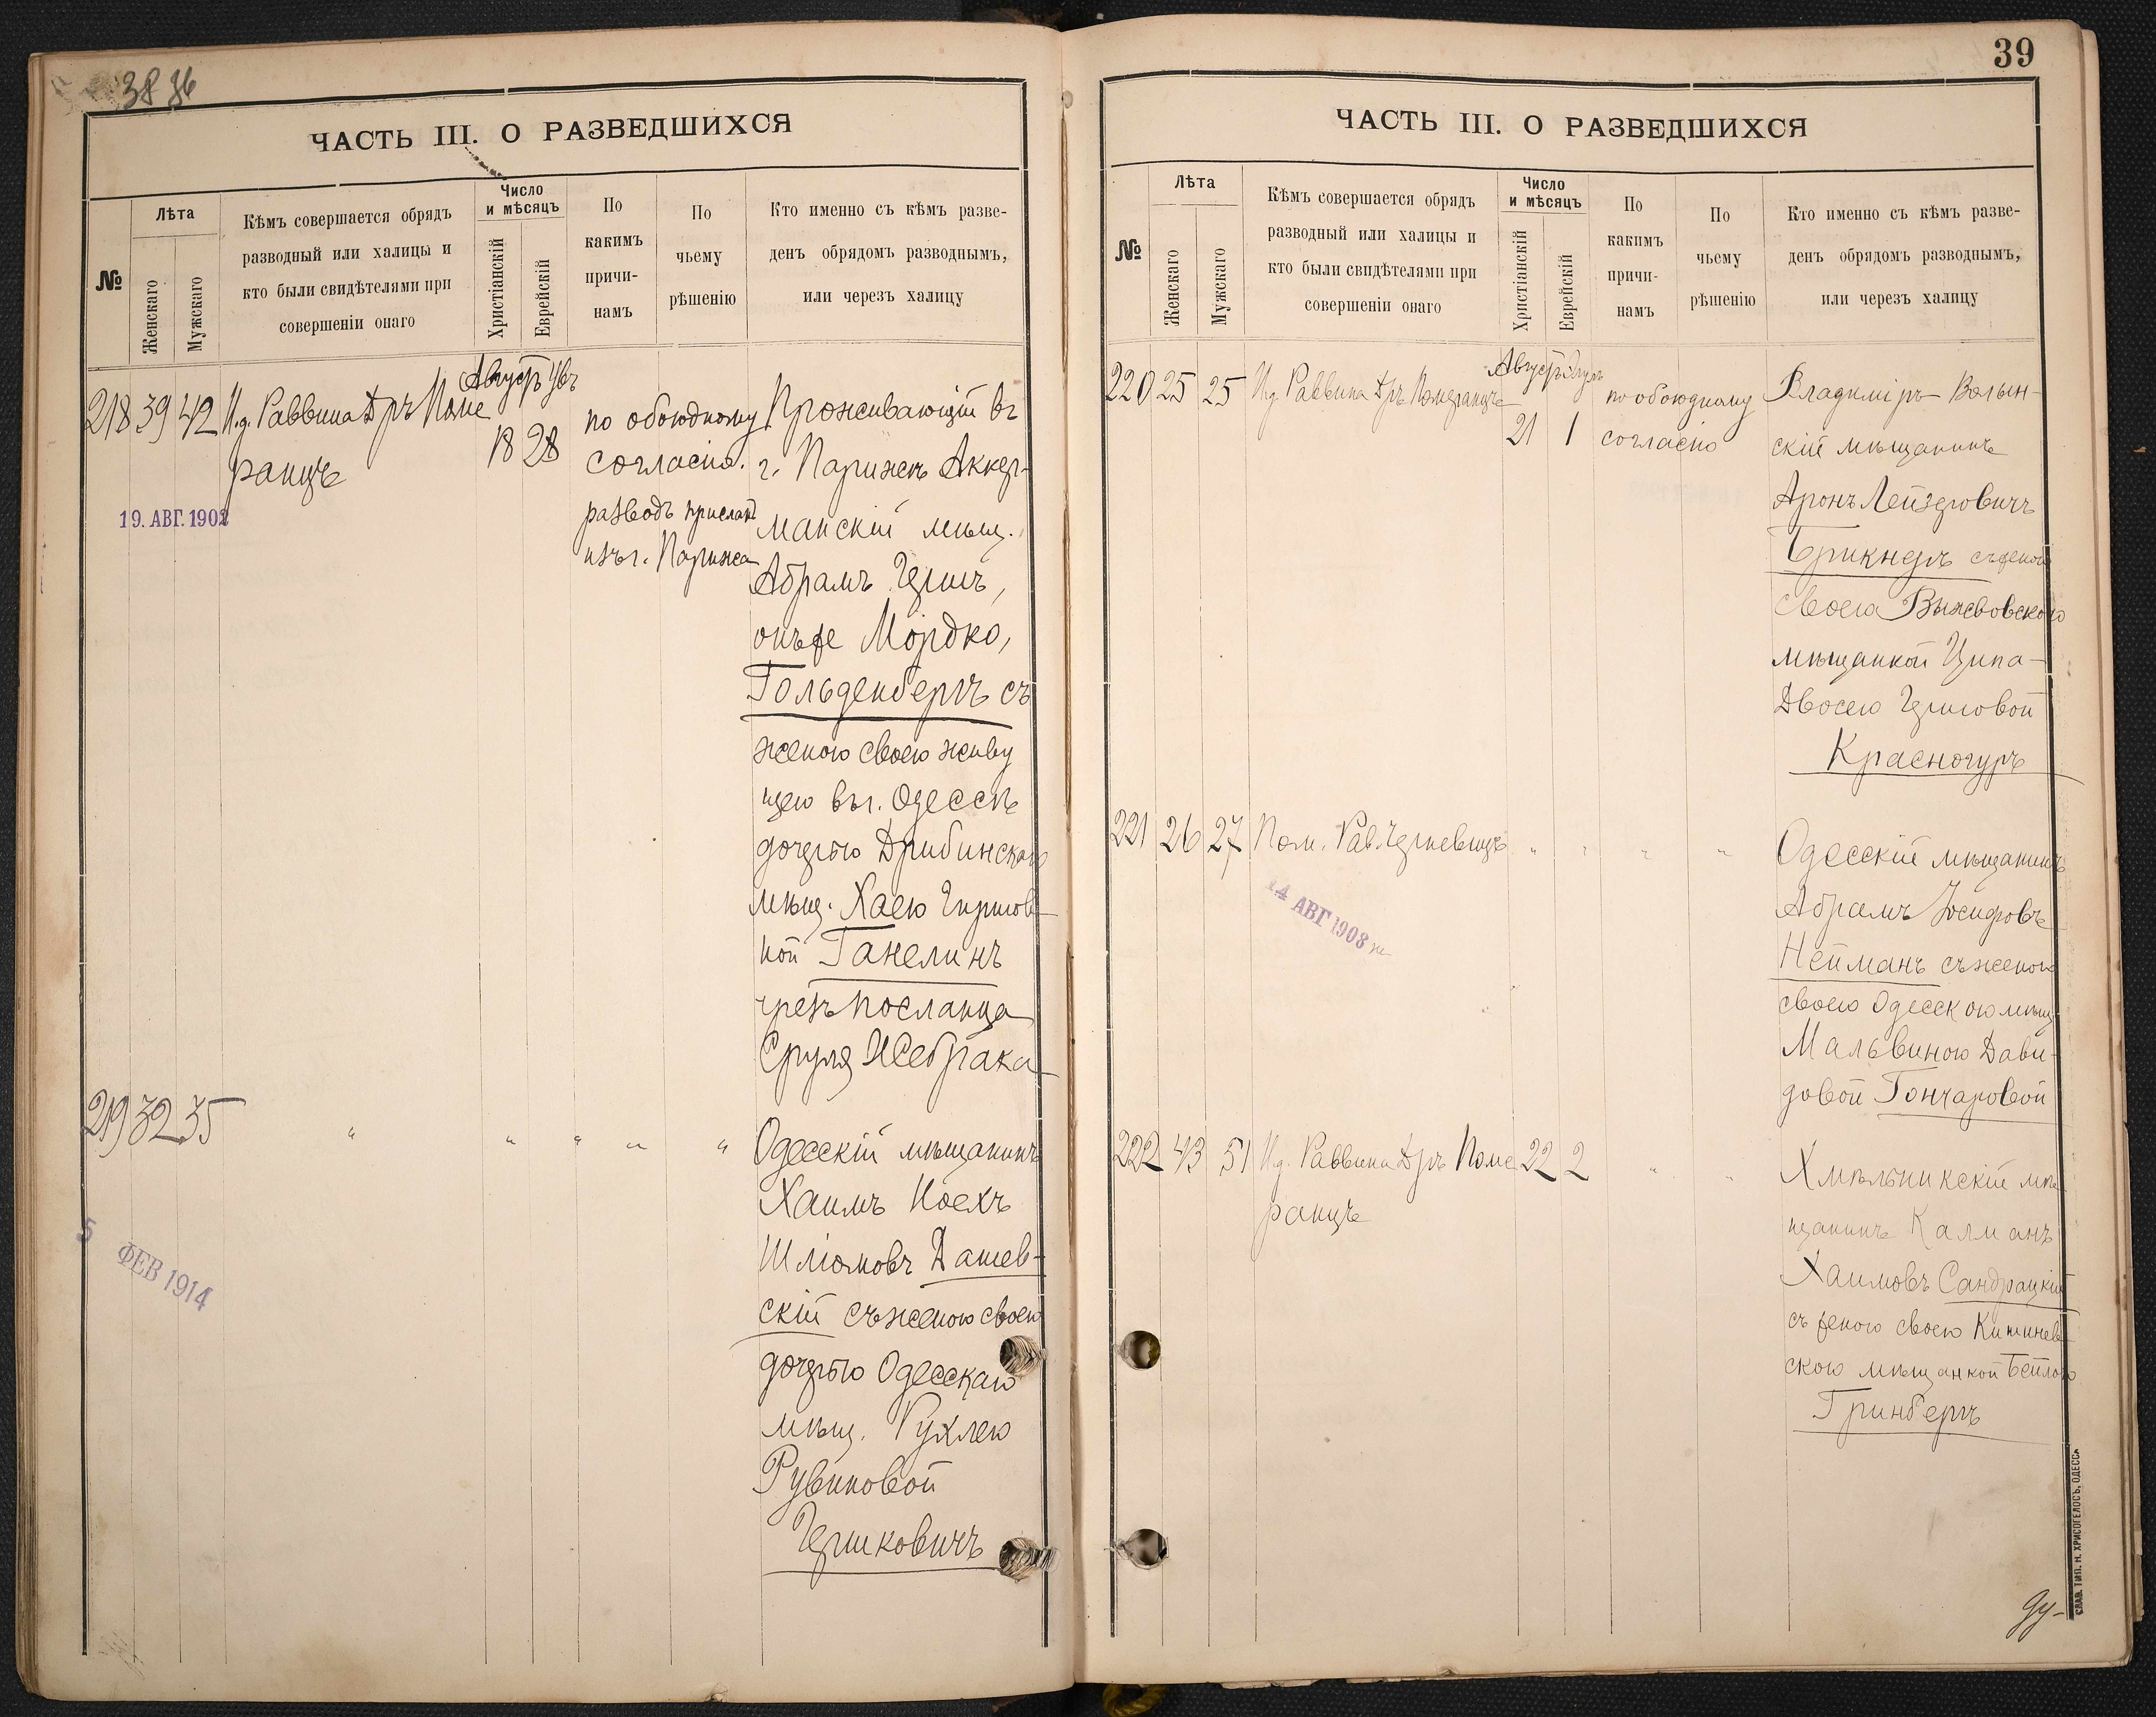 38 36
ЧАСТЬ III. О РАЗВЕДШИХСЯ
№
Лѣта
Женскаго
Мужскаго
Кѣмъ совершается обрядъ
разводный или халицы и
кто были свидѣтелями при
совершеніи онаго
Число
и мѣсяцъ
Христіанскій
Еврейскій
По
какимъ
причи-
намъ
По
чьему
рѣшенію
Кто именно съ кѣмъ разве-
денъ обрядомъ разводнымъ,
или черезъ халицу
218 39 42 И.д. Раввина Д-ръ Поме
ранцъ
19. АВГ. 1902
Августъ
18 28
по обоюдному
согласію.
разводъ присланъ
изъ г. Парижа
Проживающій въ
г. Парижѣ Аккер-
манскій мѣщ.
Абрамъ Гершъ,
онъ же Мордко,
Гольденбергъ съ
женою своею живу
щею въ г. Одессѣ
дочерью Дрибинскаго
мѣщ. Хаею Гиршов-
ной Ганелинъ
чрезъ посланца
Сруля Жебрака
219 32 35 " " " " "
5 ФЕВ 1914
Одесскій мѣщанинъ
Хаимъ Ноехъ
Шліомовъ Дашев-
скій съ женою своею
дочерью Одесскаго
мѣщ. Рухлею
Рувиновой
Гершковичъ
39
ЧАСТЬ III. О РАЗВЕДШИХСЯ
№
Лѣта
Женскаго
Мужскаго
Кѣмъ совершается обрядъ
разводный или халицы и
кто были свидѣтелями при
совершеніи онаго
Число
и мѣсяцъ
Христіанскій
Еврейскій
По
какимъ
причи-
намъ
По
чьему
рѣшенію
Кто именно съ кѣмъ разве-
денъ обрядомъ разводнымъ,
или черезъ халицу
220 25 25 И.д. Раввина Д-ръ Померанцъ
Августъ Элулъ
21 1
по обоюдному
согласію
Владиміръ-Волын-
скій мѣщанинъ
Аронъ Лейзеровичъ
Брикнеръ съ женою
своею Выжвовскою
мѣщанкой Ципа-
Двосею Гершовой
Красногуръ
221 26 27 Пом. Рав. Черневицъ " " " "
14 АВГ 1908
Одесскій мѣщанинъ
Абрамъ Іосифовъ
Нейманъ съ женою
своею Одесскою мѣщ
Мальвиною Дави-
довой Гончаровой
222 43 51 И.д. Раввина Д-ръ Поме 22 2 " "
ранцъ
Хмѣльникскій мѣ-
щанинъ Калманъ
Хаимовъ Сандрацкій
съ женою своею Кишинев-
скою мѣщанкой Бейлою
Гринбергъ
СЛАВ. ТИП. Н. ХРИСОГЕЛОСЪ, ОДЕССА